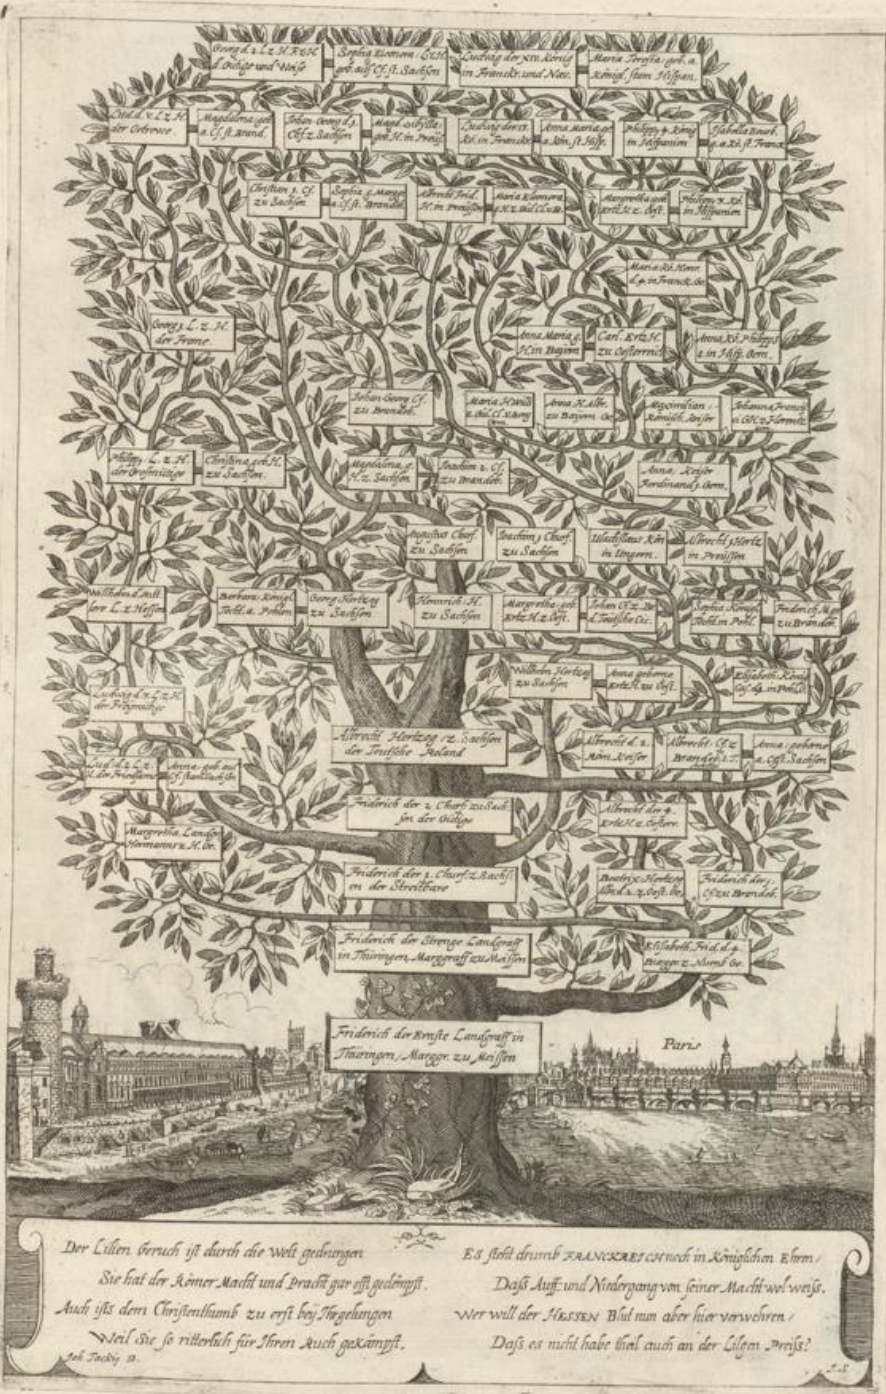 Georg d. 2. L. z. H. R z H.
d. Gütige und Weise
Sophia Eleonora L z H.
geb. aus Cf. st. Sachsen
Ludwig der XIV. König
in Franckr. und Nav.
Maria Teresia geb. a.
Königl. stam Hispan.
Lud. d. v. L. z. H.
der Getreue.
Magdalena geb.
a. Cf. st. Brand.
Johan Georg d. 1.
Cf. z. Sachsen
Magd. Sibylla
geb. H. in Preuss.
Ludwig der
Kö. in Franckr.
Anna maria ge.
a. Kön. st. Hisp.
Philipp 4. König
in Hispanien
Isabella Bourb.
g. a. Kö. st. Franck
Christian 1. Cf.
zu Sachsen
Sophia g. Marggr.
a. Cf. st. Brandeb.
Albrecht Frid.
H. in Preussen
Maria Eleonora
Margretha geb.
Ertz H. z. Oest.
Philipp 3. Kö.
in Hispanien
Maria Kö. Henr.
d. 4. in Franck. Ge.
Georg 1. L. z. H.
der Frome.
Anna Maria g.
H. in Bayern
Carl. Ertz H.
zu Oesterreich
Anna Kö. Philipps
2. in Hisp. Gem.
Johan Georg Cf.
zu Brandeb.
Maria H. Wilh.
Anna H. Albr.
zu Bayern Ge.
Maximilian
Römisch. Keiser
Johanna Francis
Philipp L. z. H.
der Grosmütige
Christina geb. H.
zu Sachsen.
Magdalena g.
H. z. Sachsen
Joachim 2. Cf.
zu Brandeb.
Anna, Keiser
Ferdinand 1. Gem.
Augustus Churf.
zu Sachsen
Joachim 1 Churf.
zu Sachsen
Uladislaus Kön
in Ungern.
Albrecht 1 Hertz
in Preussen
Wilhelm d. Mitt
lere L. z. Hessen
Barbara König.
Tocht. a. Pohlen
Georg Hertzog
zu Sachsen
Heinrich. H.
zu Sachsen
Margretha geb.
Ertz H. z. Oest.
Johan Cf. z. Br.
d. Teutsche Cic.
Sophia Königl.
Tocht. in Pohl.
Friderich M. g.
zu Brandeb.
Wilhelm Hertzog
zu Sachsen
Anna geborne
Ertz H. zu Oest.
Elisabeth König
Cas. d. 4. in Pohl. G.
Ludwig d. L. z. H.
der Freymütige
Albrecht Hertzog z. Sachsen
der Teutsche Roland
Albrecht d. 2.
Röm. Keiser
Albrecht Cf. z
Brandeb. d. T.
Anna geborne
a. Cfst. Sachsen
Lud. d. 2 L. z.
H. der Friedsame
Anna geb. aus
Cf. stam Sachsen
Friderich der 2 Churf. zu Sach
sen der Gütige
Albrecht der 4
Ertz H. z. Oesterr.
Margretha Landgr.
Hermanns z. H. Ge.
Friderich der 1. Churf. z. Sachs
en der Streitbare
Beatrix Hertzog
Albr. d. 3. z. Oest. Ge.
Friderich der 1.
Cf. zu Brandeb.
Friderich der Strenge Landgraff
in Thüringen, Marggraff zu Meissen
Elisabeth, Frid. d. 4.
Burggr. z. Nurnb Ge.
Friderich der Ernste Landgraff in
Thüringen, Marggr. zu Meissen
Paris
Der Lilien Geruch ist durch die Welt gedrungen
Sie hat der Römer Macht und Pracht gar offt gedempft.
Auch ists dem Christenthumb zu erst bey Ihr gelungen
Weil Sie so ritterlich für Ihren Ruch gekämpft.
Joh. Tackig D.
Es steht drumb FRANCKREICH noch in Königlichen Ehren /
Dass Auff und Niedergang von seiner Macht wol weiss.
Wer will der HESSEN Blut nun aber hier verwehren /
Dass es nicht habe theil auch an der Lilgen Preiss?
J. S.